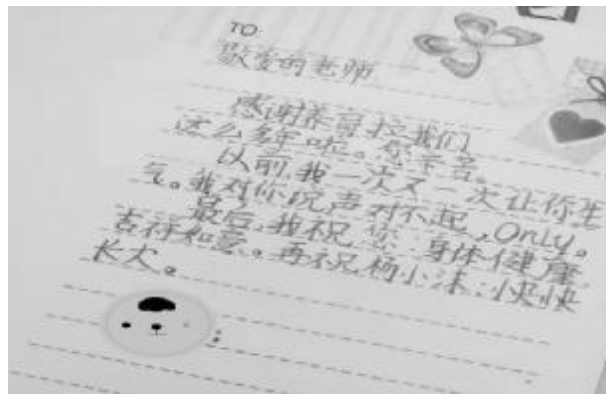 TO:
敬爱的老师
感谢养育拉我们
这么多年啦。您辛苦。
以前,我一次又一次让你生
气。我对你说声对不起,Only。
最后,我祝您:身体健康
吉祥如意。再祝杨小沫:快快
长大。